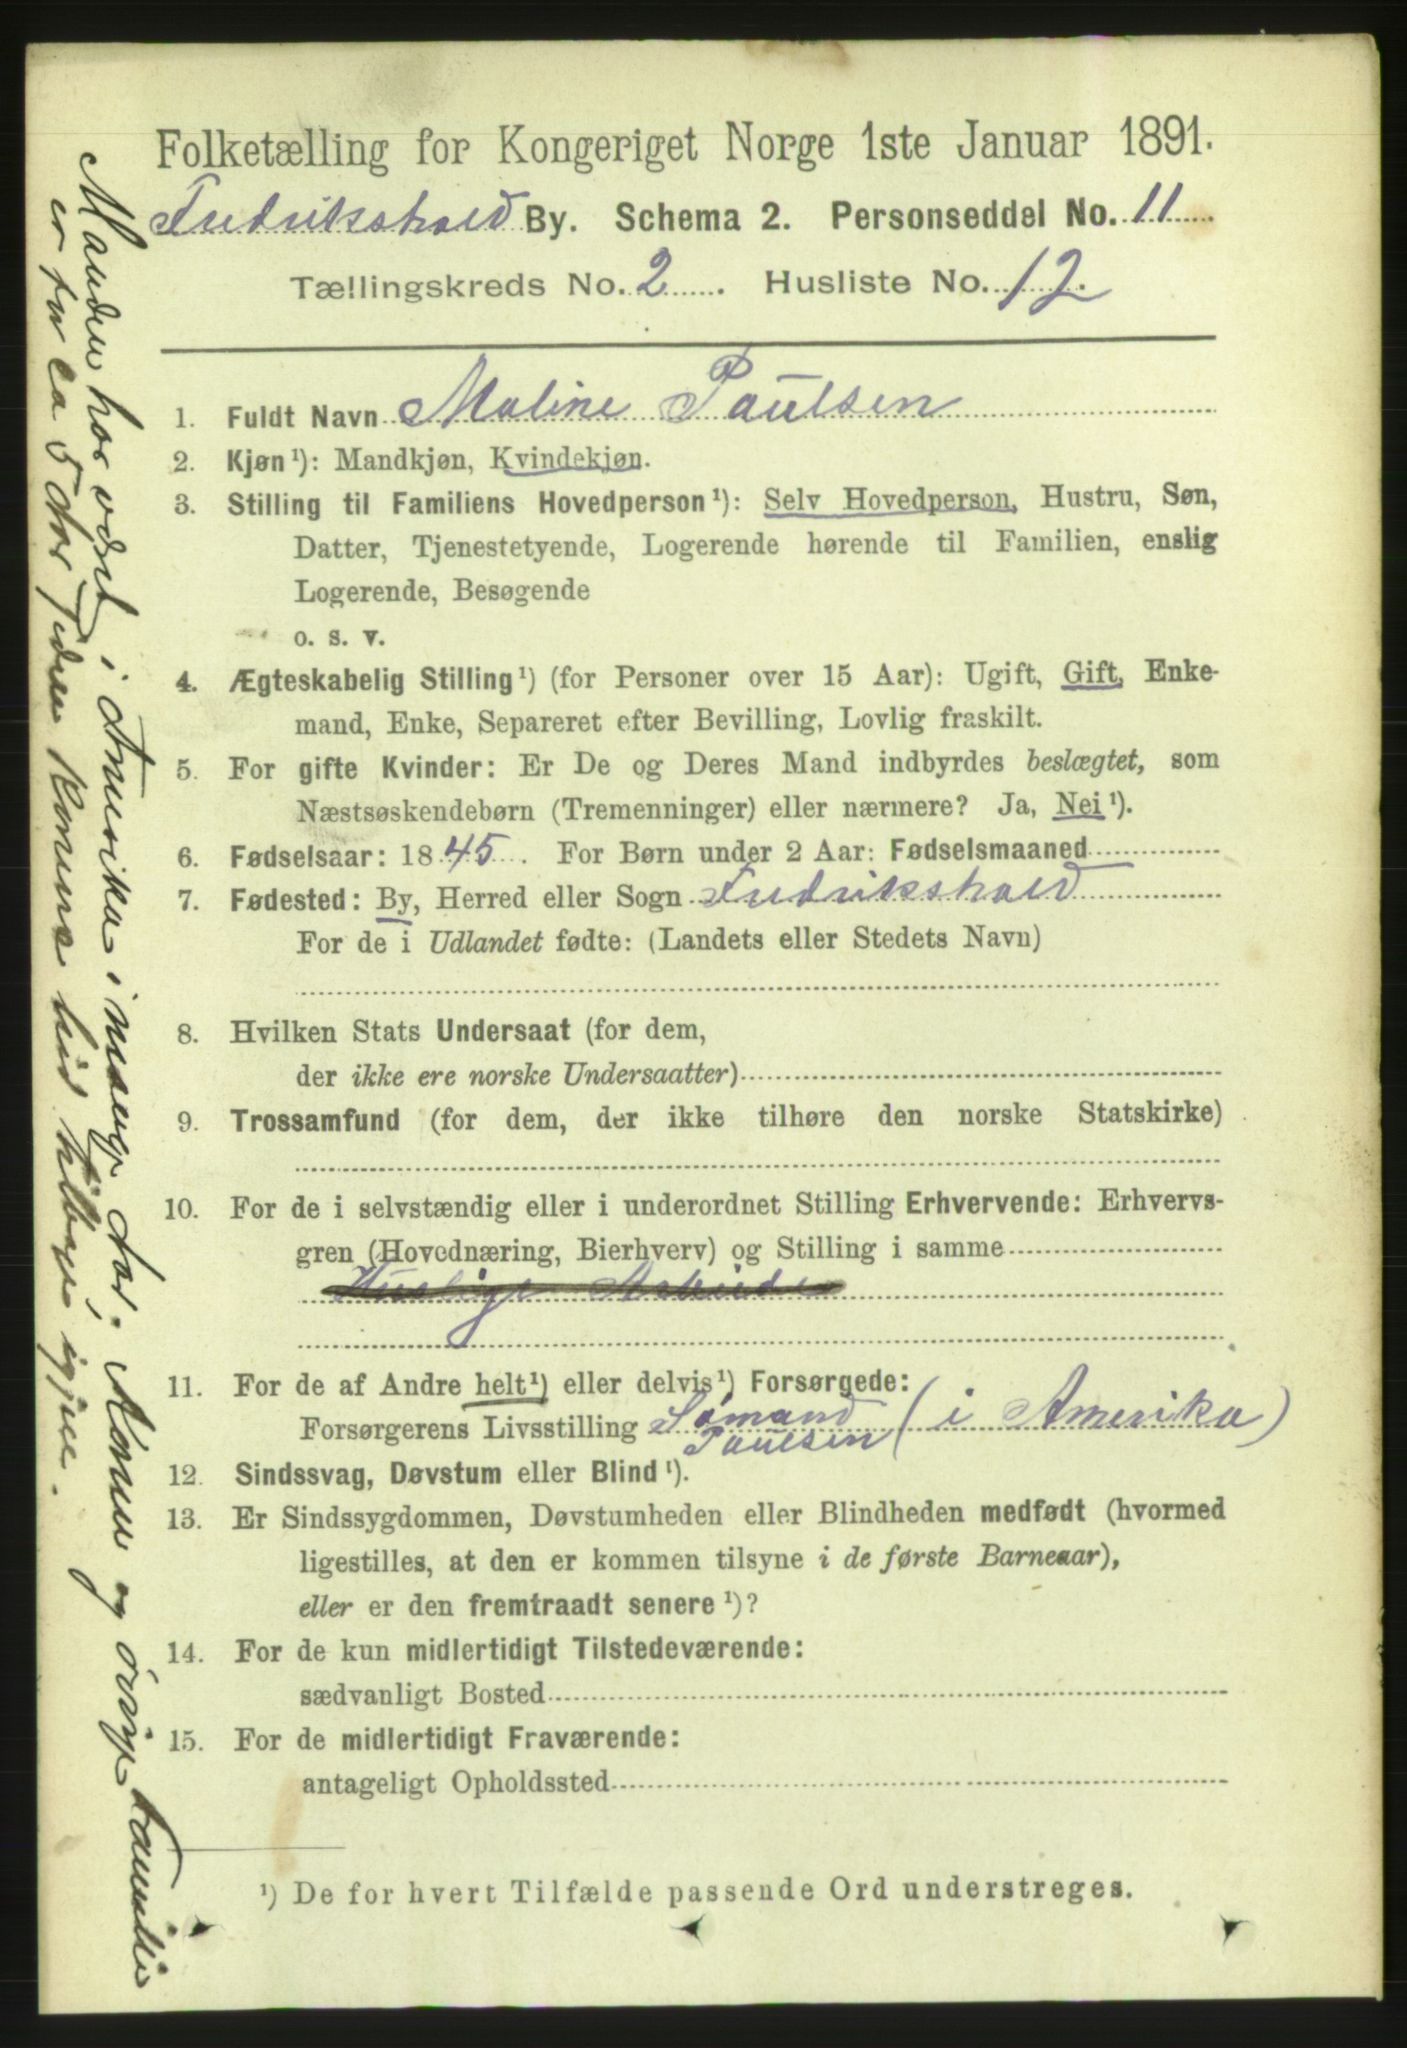 Folketælling for Kongeriget Norge 1ste Januar 1891.
Fredrikshald By. Schema 2. Personseddel No. 11
Tællingskreds No. 2. Husliste No. 12.
1. Fuldt Navn Maline Paulsen
2. Kjøn ¹): Mandkjøn, Kvindekjøn.
3. Stilling til Familiens Hovedperson ¹): Selv Hovedperson, Hustru, Søn,
Datter, Tjenestetyende, Logerende hørende til Familien, enslig
Logerende, Besøgende
o. s. v.
4. Ægteskabelig Stilling ¹) (for Personer over 15 Aar): Ugift, Gift, Enke-
mand, Enke, Separeret efter Bevilling, Lovlig fraskilt.
5. For gifte Kvinder: Er De og Deres Mand indbyrdes beslægtet, som
Næstsøskendebørn (Tremenninger) eller nærmere? Ja, Nei ¹).
6. Fødselsaar: 1845. For Børn under 2 Aar: Fødselsmaaned
7. Fødested: By, Herred eller Sogn Fredrikshald
For de i Udlandet fødte: (Landets eller Stedets Navn)
8. Hvilken Stats Undersaat (for dem,
der ikke ere norske Undersaatter)
9. Trossamfund (for dem, der ikke tilhøre den norske Statskirke)
10. For de i selvstændig eller i underordnet Stilling Erhvervende: Erhvervs-
gren (Hovednæring, Bierhverv) og Stilling i samme
Huslige Arbeide
11. For de af Andre helt ¹) eller delvis ¹) Forsørgede:
Forsørgerens Livsstilling Sømand (i Amerika)
Paulsen
12. Sindssvag, Døvstum eller Blind ¹).
13. Er Sindssygdommen, Døvstumheden eller Blindheden medfødt (hvormed
ligestilles, at den er kommen tilsyne i de første Barneaar),
eller er den fremtraadt senere ¹)?
14. For de kun midlertidigt Tilstedeværende:
sædvanligt Bosted
15. For de midlertidigt Fraværende:
antageligt Opholdssted
¹) De for hvert Tilfælde passende Ord understreges.
Manden har været i Amerika i mange Aar. Konen og øvrige Familie
er for ca 5 Aar siden komne hid tilbage igjen.